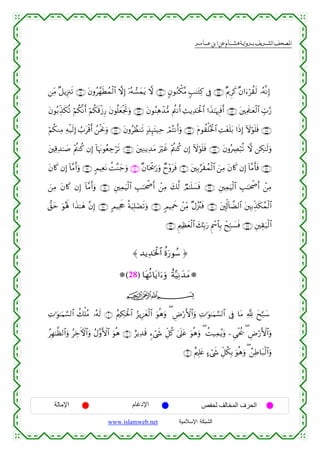 المصحف الشريف برواية هشام عن ابن عامر
إِنَّهُۥ لَقُرْءَانٌ كَرِيمٌ فِى كِتَٰبٍ مَّكْنُونٍ لَّا يَمَسُّهُۥٓ إِلَّا ٱلْمُطَهَّرُونَ تَنزِيلٌ مِّن
رَّبِّ ٱلْعَٰلَمِينَ أَفَبِهَٰذَا ٱلْحَدِيثِ أَنتُم مُّدْهِنُونَ وَتَجْعَلُونَ رِزْقَكُمْ أَنَّكُمْ تُكَذِّبُونَ
فَلَوْلَآ إِذَا بَلَغَتِ ٱلْحُلْقُومَ وَأَنتُمْ حِينَئِذٍ تَنظُرُونَ وَنَحْنُ أَقْرَبُ إِلَيْهِ مِنكُمْ
وَلَٰكِن لَّا تُبْصِرُونَ فَلَوْلَآ إِن كُنتُمْ غَيْرَ مَدِينِينَ تَرْجِعُونَهَآ إِن كُنتُمْ صَٰدِقِينَ
فَأَمَّآ إِن كَانَ مِنَ ٱلْمُقَرَّبِينَ فَرَوْحٌ وَرَيْحَانٌ وَجَنَّتُ نَعِيمٍ وَأَمَّآ إِن كَانَ
مِنْ أَصْحَٰبِ ٱلْيَمِينِ فَسَلَٰمٌ لَّكَ مِنْ أَصْحَٰبِ ٱلْيَمِينِ وَأَمَّآ إِن كَانَ مِنَ
ٱلْمُكَذِّبِينَ ٱلضَّآلِّينَ فَنُزُلٌ مِّنْ حَمِيمٍ وَتَصْلِيَةُ جَحِيمٍ إِنَّ هَٰذَا لَهُوَ حَقُّ
ٱلْيَقِينِ فَسَبِّحْ بِٱسْمِ رَبِّكَ ٱلْعَظِيمِ
سُورَةُ ٱلْحَدِيدِ
مَدَنِيَّةٌ وَءَايَاتُهَا (28)
بِسْمِ ٱللَّهِ ٱلرَّحْمَٰنِ ٱلرَّحِيمِ
سَبَّحَ لِلَّهِ مَا فِى ٱلسَّمَٰوَٰتِ وَٱلْأَرْضِ وَهُوَ ٱلْعَزِيزُ ٱلْحَكِيمُ لَهُۥ مُلْكُ ٱلسَّمَٰوَٰتِ
وَٱلْأَرْضِ يُحْىِۦ وَيُمِيتُ وَهُوَ عَلَىٰ كُلِّ شَىْءٍ قَدِيرٌ هُوَ ٱلْأَوَّلُ وَٱلْءَاخِرُ وَٱلظَّٰهِرُ
وَٱلْبَاطِنُ وَهُوَ بِكُلِّ شَىْءٍ عَلِيمٌ
الحرف المخالف لحفص الإدغام الإمالة
الشبكة الإسلامية www.islamweb.net